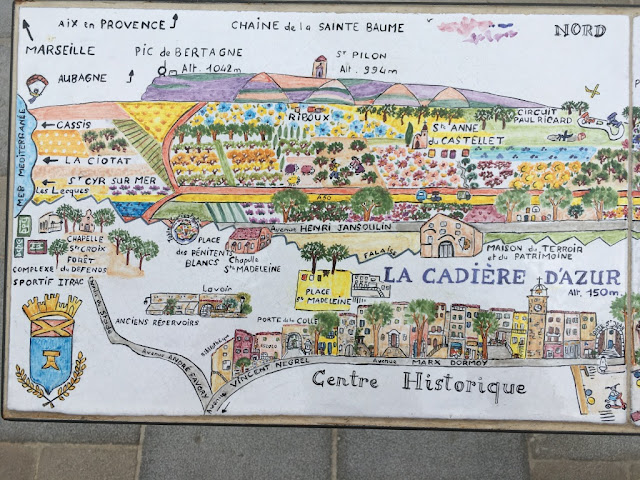 AIX en PROVENCE
CHAINE de la SAINTE BAUME
NORD
MARSEILLE
PIC de BERTAGNE
Alt. 1042m
St PILON
Alt. 994m
AUBAGNE
MER MEDITERRANÉE
CASSIS
RIBOUX
Ste ANNE
du CASTELLET
CIRCUIT
PAUL RICARD
LA CIOTAT
St CYR SUR MER
Les Lecques
A50
Avenue HENRI JANSOULIN
CHAPELLE
Ste CROIX
FORÊT
du DEFENDS
COMPLEXE
SPORTIF ITRAC
PLACE
des
PÉNITENTS
BLANCS
Chapelle
Ste MADELEINE
FALAISE
MAISON du TERROIR
et du PATRIMOINE
LA CADIÈRE D'AZUR
Alt. 150m
Lavoir
ANCIENS RÉSERVOIRS
PLACE
Ste MADELEINE
PORTE de la COLLE
Avenue ANDRÉ FAVORY
Avenue VINCENT NEGREL
Avenue MARX DORMOY
Centre Historique